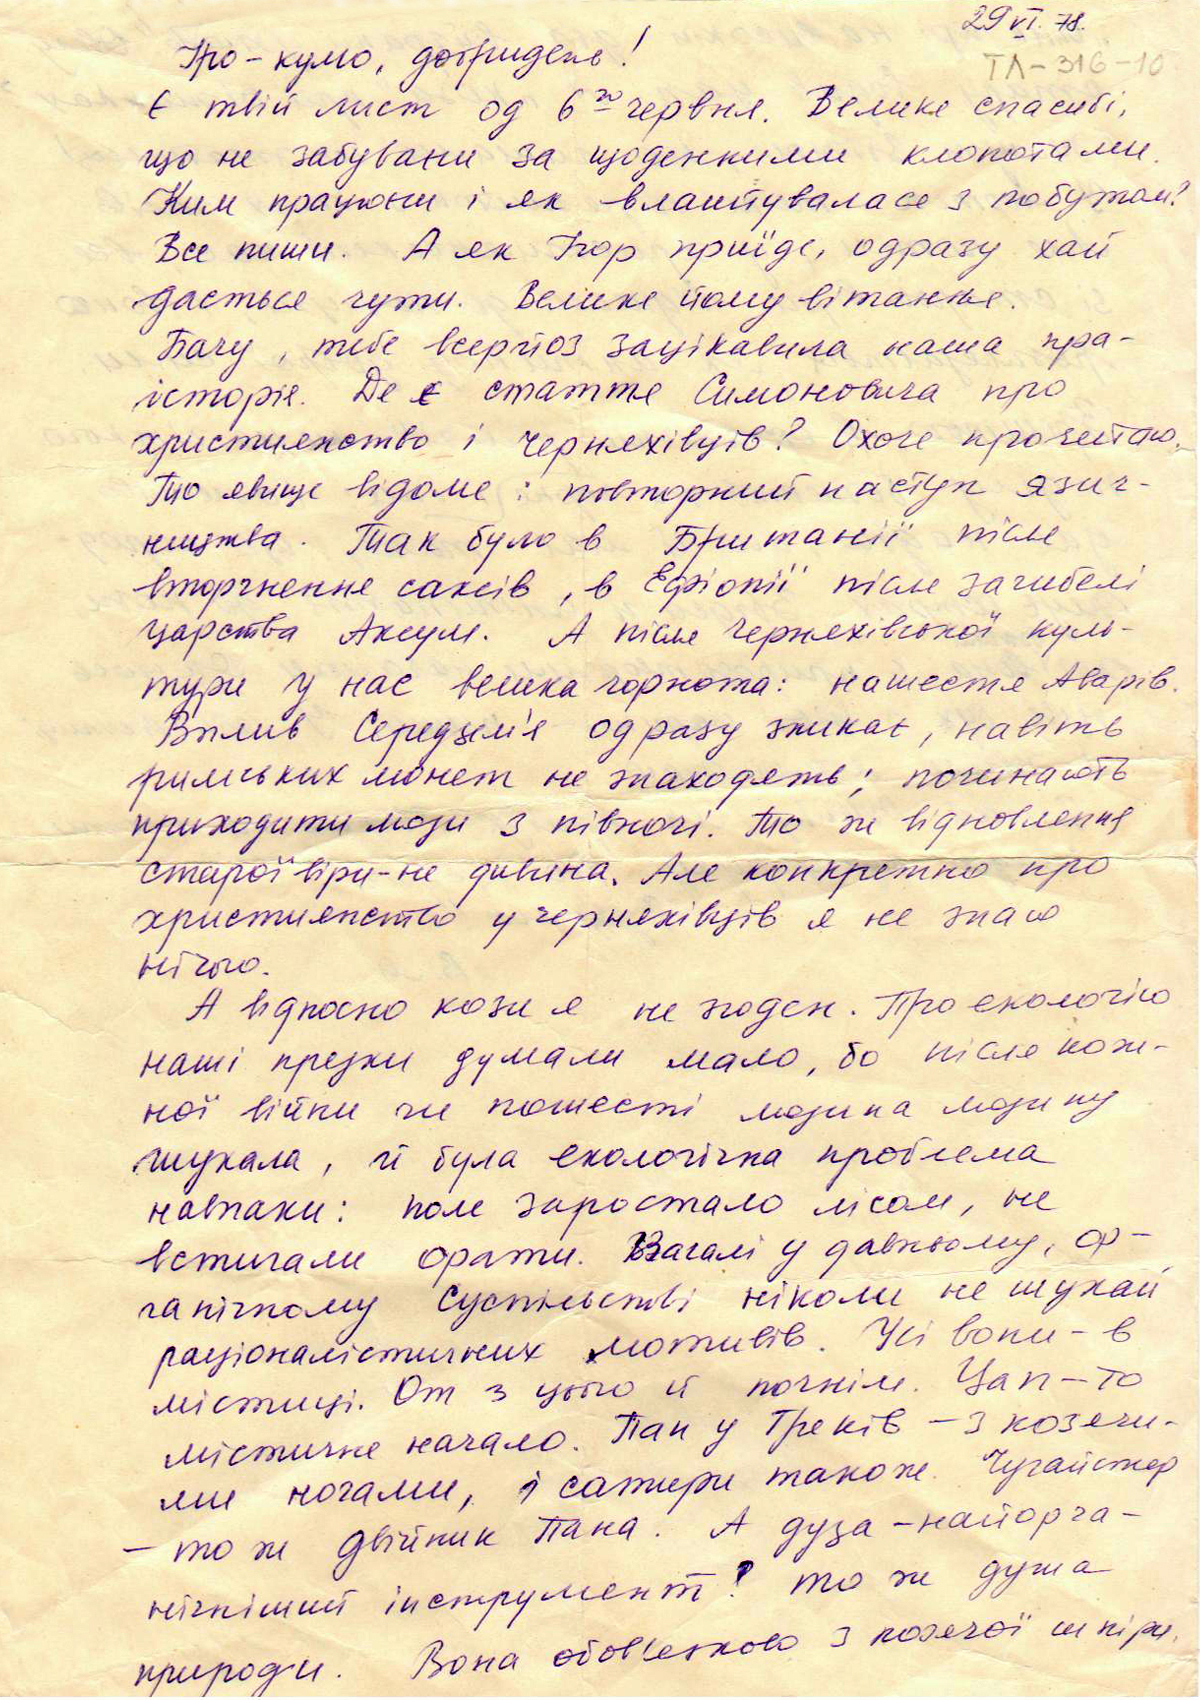 29 VI. 78.
ТЛ-316-10
Іро-кумо, добридень!
Є твій лист од 6го червня. Велике спасибі,
що не забуваєш за щоденними клопотами.
Ким працюєш і як влаштувалася з побутом?
Все пиши. А як Ігор приїде, одразу хай
дасться чути. Велике йому вітання.
Бачу, тебе всерйоз зацікавила наша пра-
історія. Де є стаття Симоновича про
християнство і черняхівців? Охоче прочитаю.
То явище відоме: повторний наступ язич-
ництва. Так було в Британії після
вторгнення саксів, в Ефіопії після загибелі
царства Аксум. А після черняхівської куль-
тури у нас велика чорнота: нашестя Аварів.
Вплив Середзем'я одразу зникає, навіть
римських монет не знаходять; починають
приходити люди з півночі. То ж відновлення
старої віри-не дивина. Але конкретно про
християнство у черняхівців я не знаю
нічого.
А відносно кози я не згоден. Про екологію
наші предки думали мало, бо після кож-
ної війни чи пошесті людина людину
шукала, й була екологічна проблема
навпаки: поле заростало лісом, не
встигали орати. Взагалі у давньому, ор-
ганічному суспільстві ніколи не шукай
раціоналістичних мотивів. Усі вони-в
містиці. От з цього й почнім. Цап-то
містичне начало. Пан у Греків - з козячи-
ми ногами, і сатири також. Чугайстер
- то ж двійник Пана. А дуда-найорга-
нічніший інструмент! то ж душа
природи. Вона обов'язково з козячої шкіри.